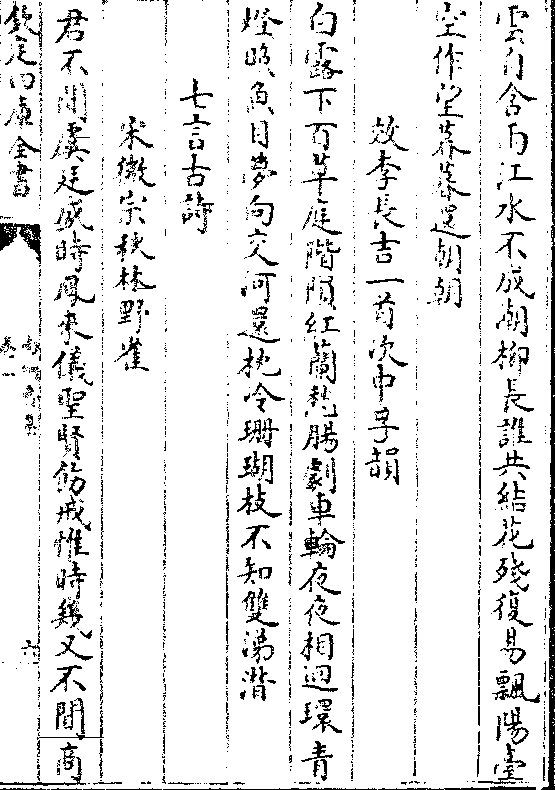 雲自含雨江水不成潮柳長誰共結花殘復易飄陽臺
空作望暮暮還朝朝
效李長吉一首次申孚韻
白露下百草庭階隕紅蘭熱腸劇車輪夜夜相迴環青
燈照魚目夢向交河還枕冷珊瑚枝不知雙淚潸
七言古詩
宋徽宗秋林野雀
君不聞虞廷盛時鳳來儀聖賢飭戒惟時幾又不聞商
欽定四庫全書
卷一
六